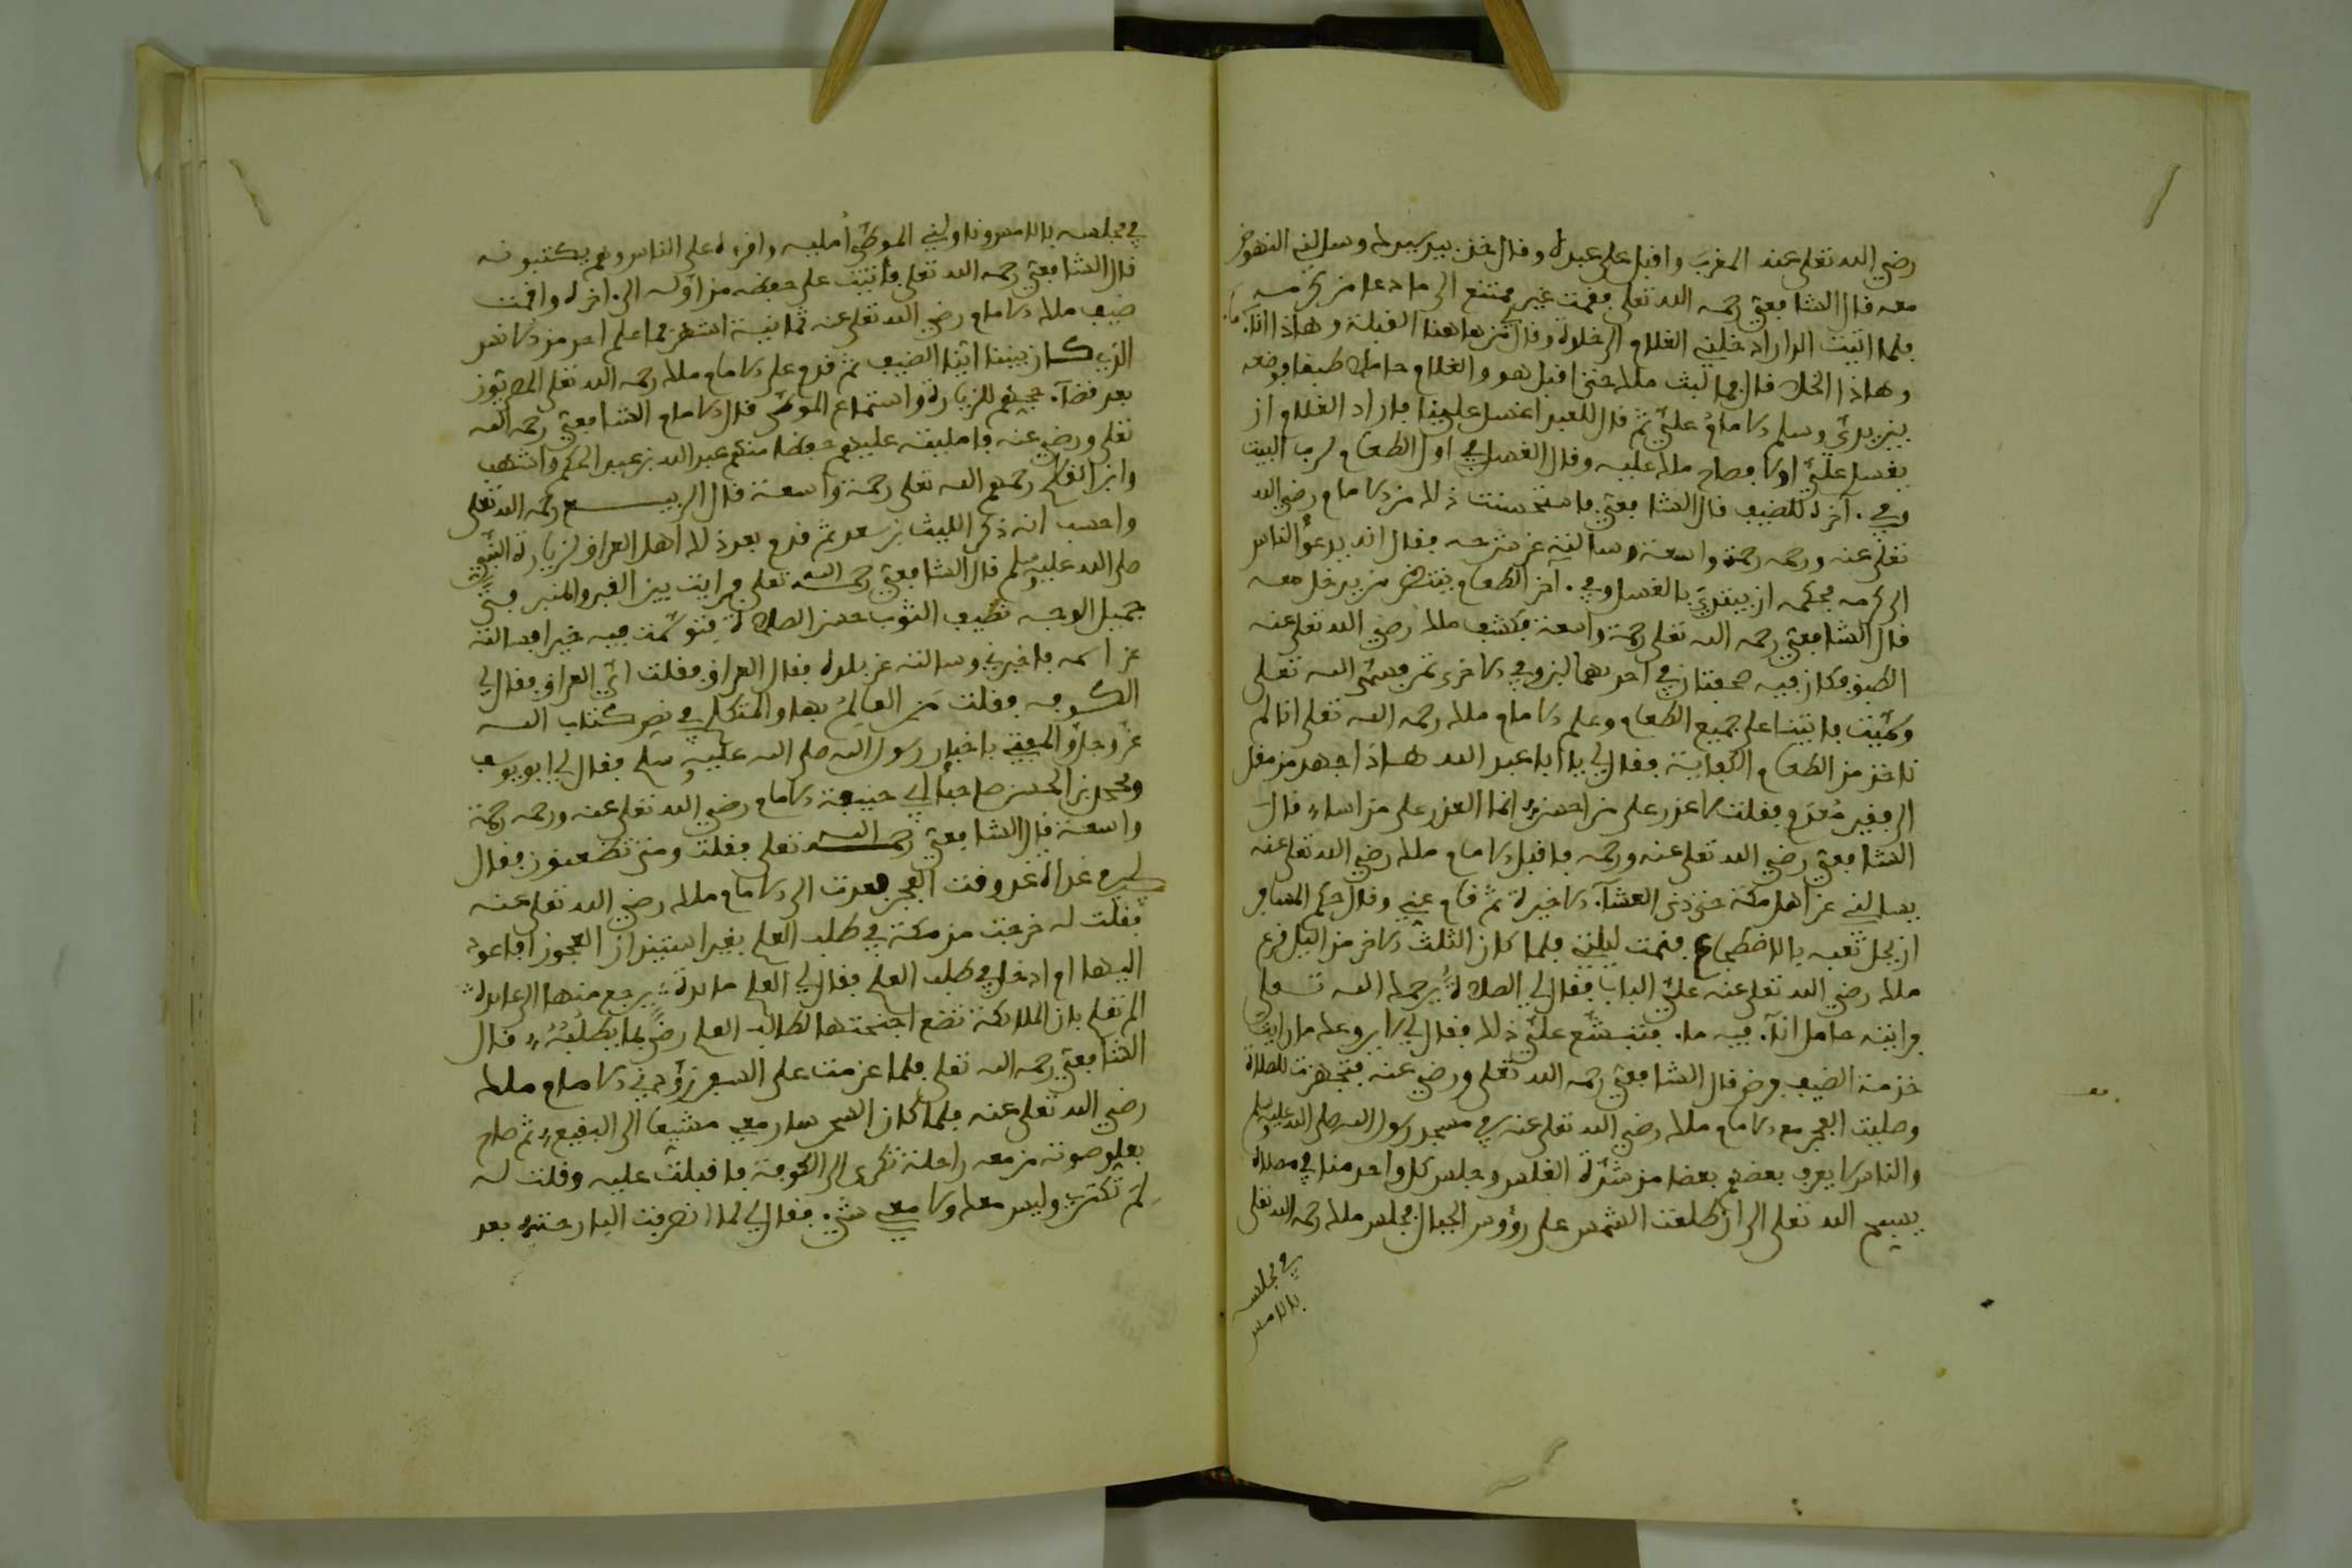 رضي الله تعلى عنه المغرب واقبل على عبده وقال خذ بيد سيدك وسالني النهوض
معه قال الشافعي رحمه الله تعلى فقمت غير ممتنع الى ما دعا من كرمه
فلما اتيت الدار ادخلني الغلام الى خلوة وقال لي من هاهنا القبلة وهاذا انا. ما.
وهاذا الخلا قال فما لبث ملك حتى اقبل هو والغلام حاملا طبقا فوضعه
بين يدي وسلم الامام علي ثم قال للعبد اغسل علينا فاراد الغلام ان
يغسل علي اولا فصاح ملك عليه وقال الغسل في اول الطعام لرب البيت
وفي. آخره للضيف قال الشافعي فاستحسنت ذلك من الامام رضي الله
تعلى عنه ورحمه رحمة واسعة وسالته عن شرحه فقال انه يدعو الناس
الى كرمه فحكمه ان يبتدي بالغسل وفي. اخر الطعام ينتظر من يدخل معه
قال الشافعي رحمه الله تعلى رحمة واسعة فكشف ملك رضي الله تعلى عنه
الطبق فكان فيه صحفتان في احديهما لبن وفي الاخرى تمر فسمى الله تعلى
وسميت فاتينا على جميع الطعام وعلم الامام ملك رحمه الله تعلى انا لم
ناخذ من الطعام الكفاية فقال لي يا أبا عبد الله هاذا جهد من مقل
الى فقير معدم فقلت لا عذر على من احسن انما العذر على من اساء قال
الشافعي رضي الله تعلى عنه ورحمه فاقبل الامام ملك رضي الله تعلى عنه
يسالني عن اهل مكة حتى دنى العشآ. الاخيرة ثم قام عني وقال حكم المسافر
ان يحل تعبه بالاضطجاع فنمت ليلتي فلما كان الثلث الاخر من اليل قرع
ملك رضي الله تعلى عنه علي الباب فقال لي الصلاة يرحمك الله تعلى
فرايته حامل انآ. فيه ما. فتبشع علي ذلك فقال لي لا يروعك ما رايت
خدمة الضيف فرض قال الشافعي رحمه الله تعلى ورضي عنه فتجهزت للصلاة
وصليت الفجر مع الامام ملك رضي الله تعلى عنه في مسجد رسول الله صلى الله عليه وسلم
والناس لا يعرف بعضهم بعضا من شدة الغلس وجلس كل واحد منا في مصلاه
يسبح الله تعلى الى ان طلعت الشمس على رؤوس الجبال فجلس ملك رحمه الله تعلى
في مجلسه
بالامس
في مجلسه بالامس وناولني الموطى أمليه واقرءه على الناس وهم يكتبونه
قال الشافعي رحمه الله تعلى فأتيت على حفظه من اوله الى. اخره واقمت
ضيف ملك الامام رضي الله تعلى عنه ثمانية اشهر فما علم احد من الانس
الذي كان بيننا اينا الضيف ثم قدم على الامام ملك رحمه الله تعلى المصريون
بعد قضآ. حجهم للزيارة واستماع الموطى قال الامام الشافعي رحمه الله
تعلى ورضي عنه فامليته عليهم حفظا منهم عبد الله بن عبد الحكم واشهب
وابن القاسم رحمهم الله تعلى رحمة واسعة قال الربيع رحمه الله تعلى
واحسب انه ذكر الليث بن سعد ثم قدم بعد ذلك اهل العراق لزيارة النبي
صلى الله عليه وسلم قال الشافعي رحمه الله تعلى فرايت بين القبر والمنبر فتى
جميل الوجه نظيف الثوب حسن الصلاة فتوسمت فيه خيرا فسالته
عن اسمه فاخبرني وسالته عن بلده فقال العراق فقلت اي العراق فقال لي
الكوفه فقلت من العالم بها والمتكلم في نص كتاب الله
عز وجل والمفتي باخبار رسول الله صلى الله عليه وسلم فقال لي ابو يوسف
ومحمد بن الحسن صاحبا ابي حنيفة الامام رضي الله تعلى عنه ورحمه رحمة
واسعة قال الشافعي رحمه الله تعلى فقلت ومتى تظعنون فقال
لي في غداة غد وقت الفجر فعدت الى الامام ملك رضي الله تعلى عنه
فقلت له خرجت من مكة في طلب العلم بغير استيذان العجوز افاعود
اليها ام ادخل في طلب العلم فقال لي العلم فايدة يرجع منها الى عايدة
الم تعلم بان الملائكة تضع اجنحتها لطالب العلم رضى بما يطلبه قال
الشافعي رحمه الله تعلى فلما عزمت على السفر زودني الامام ملك
رضي الله تعلى عنه فلما كان السحر سار معي مشيعا الى البقيع ثم صاح
بعلو صوته من معه راحلة تكرى الى الكوفة فاقبلت عليه وقلت له
لم تكتري وليس معك ولا معي شي. فقال لي لما انصرفت البارحة بعد